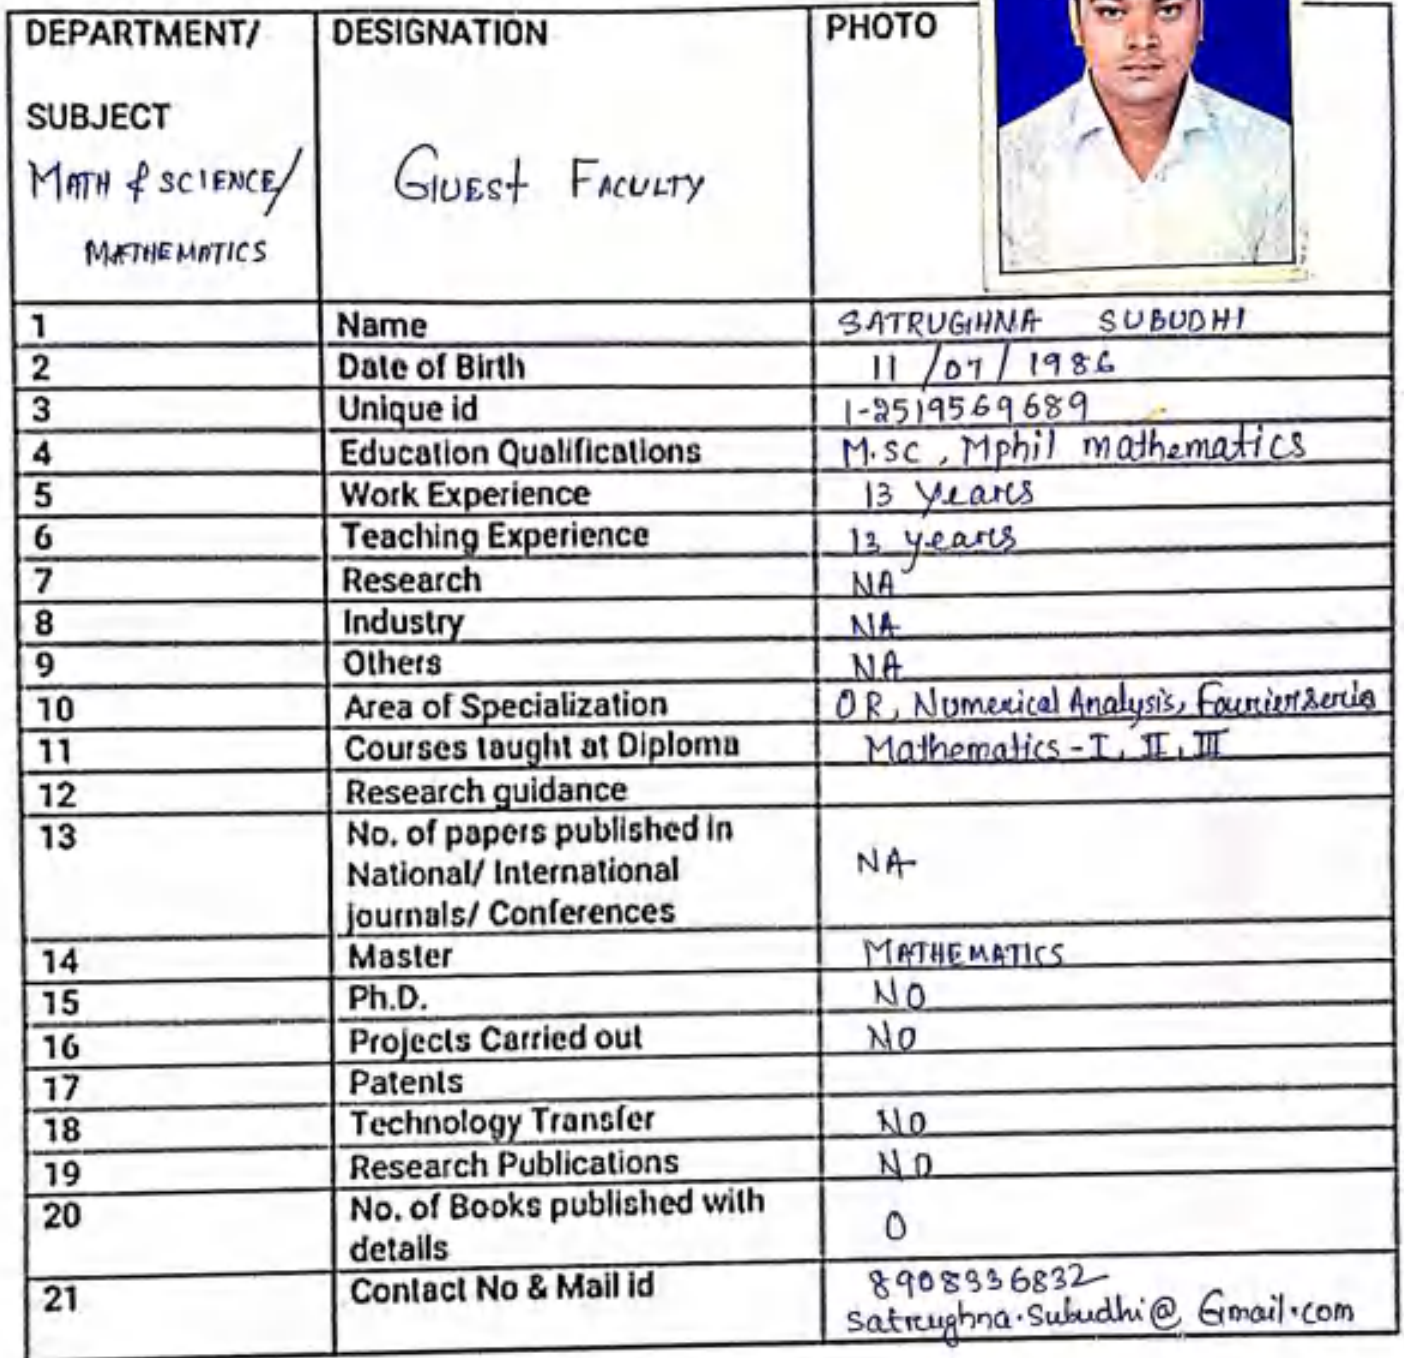 DEPARTMENT/ DESIGNATION PHOTO
SUBJECT
MATH & SCIENCE/ GUEST FACULTY
MATHEMATICS
1 Name SATRUGHNA SUBUDHI
2 Date of Birth 11/07/1986
3 Unique id 1-2519569689
4 Education Qualifications M.sc, Mphil mathematics
5 Work Experience 13 years
6 Teaching Experience 13 years
7 Research NA
8 Industry NA
9 Others NA
10 Area of Specialization OR, Numerical Analysis, Fourier Series
11 Courses taught at Diploma Mathematics-I, II, III
12 Research guidance
13 No. of papers published in
National/ International NA
journals/ Conferences
14 Master MATHEMATICS
15 Ph.D. NO
16 Projects Carried out NO
17 Patents
18 Technology Transfer NO
19 Research Publications NO
20 No. of Books published with
details 0
21 Contact No & Mail id 8908336832
satrughna.Subudhi@Gmail.com